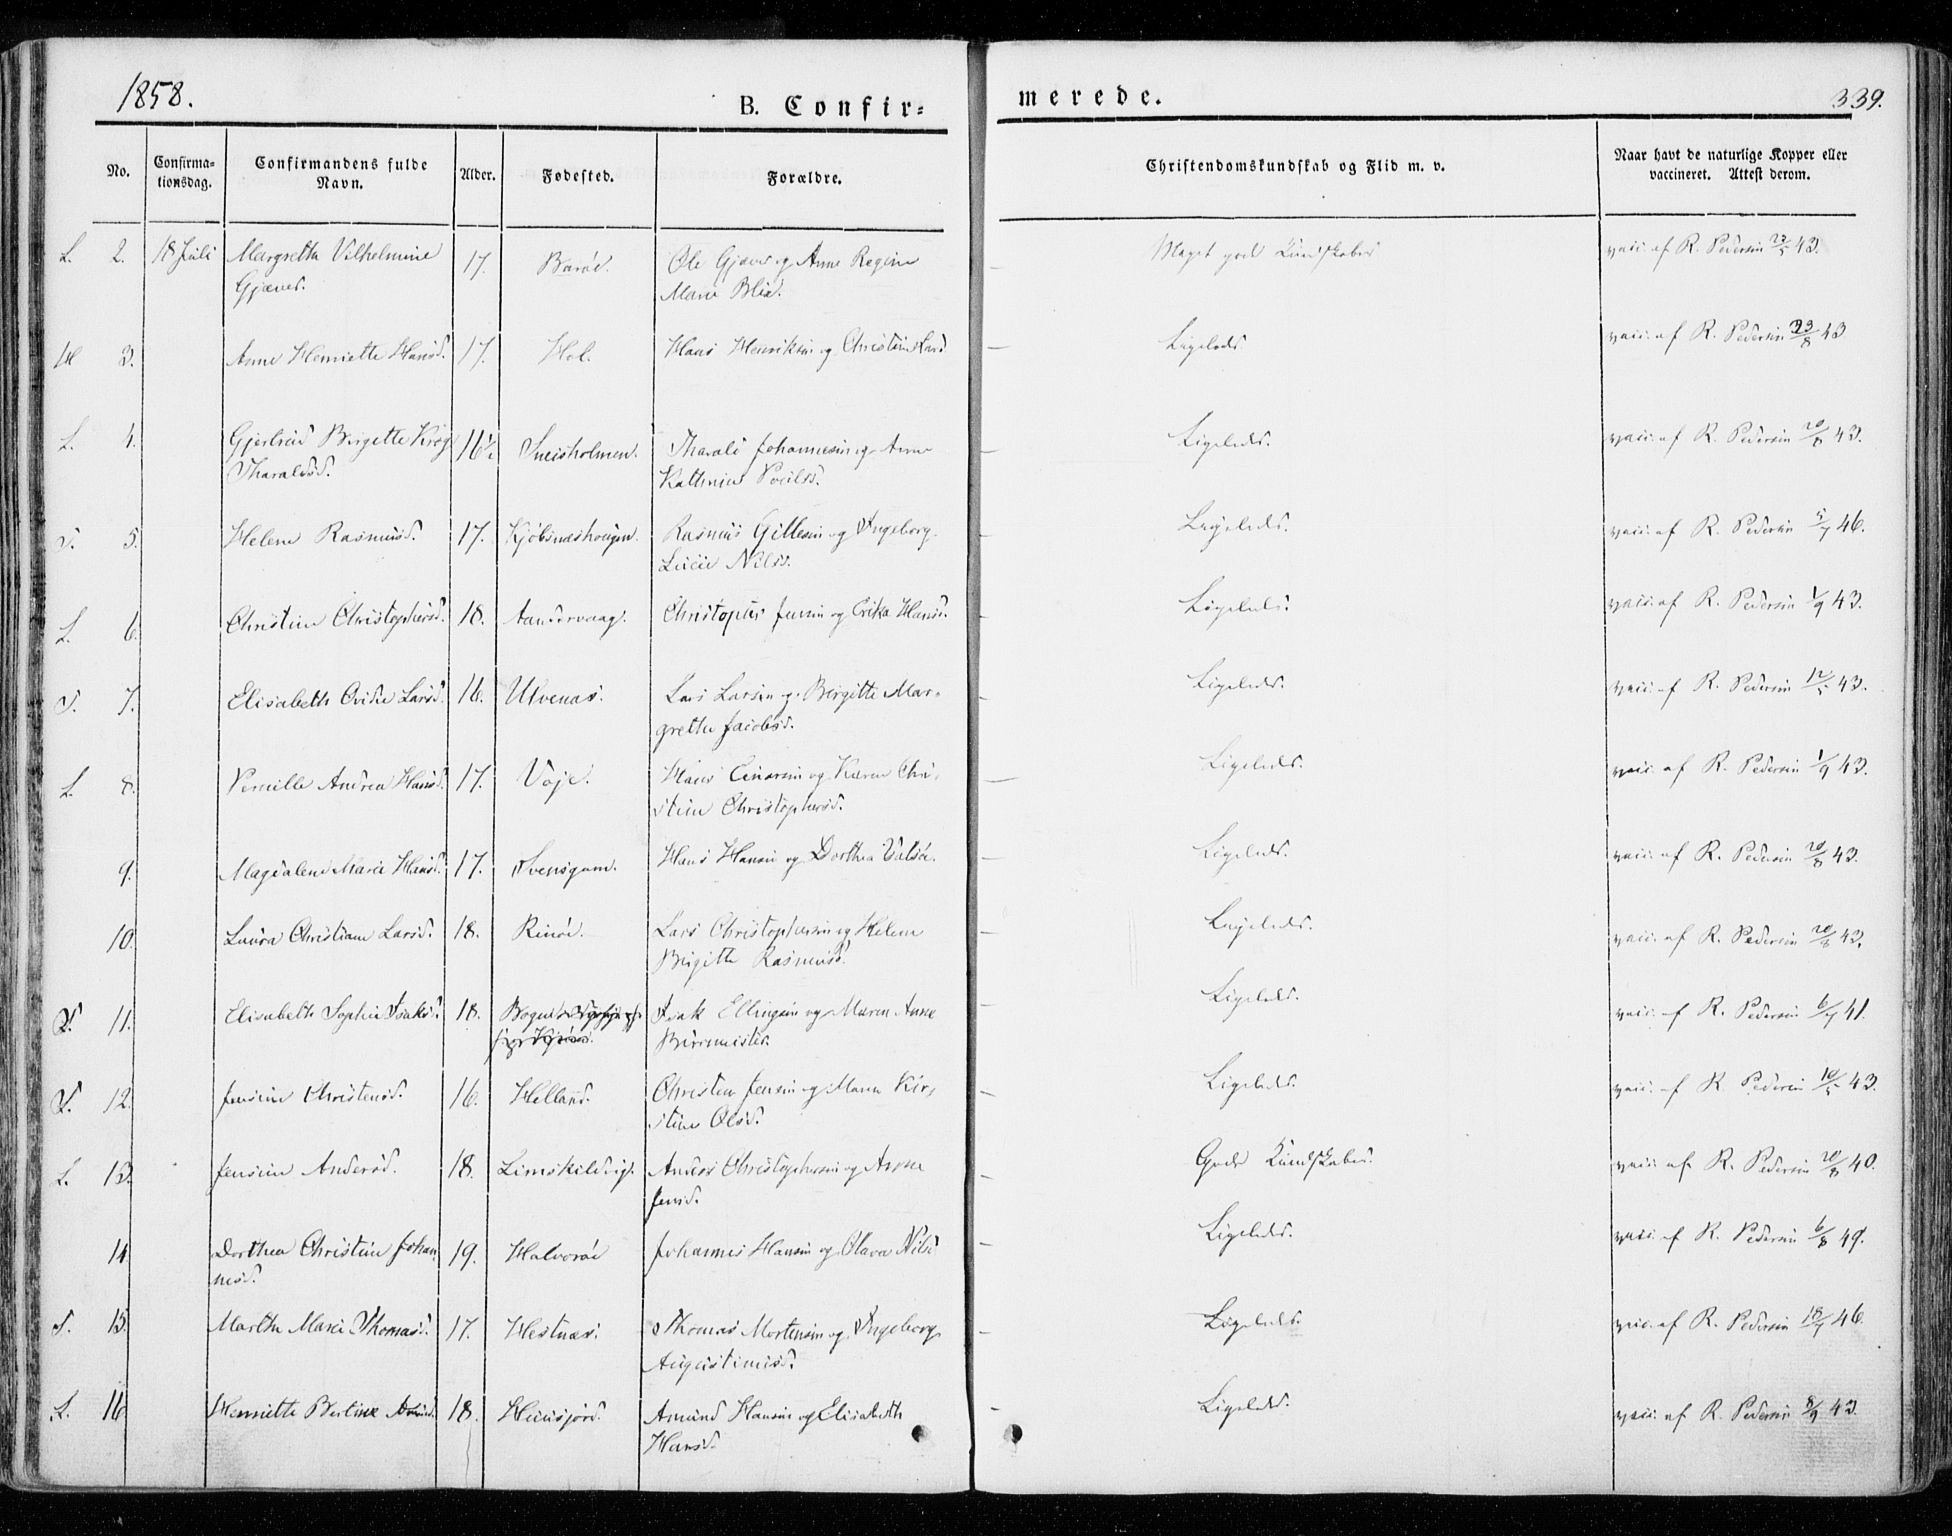 1858.
B. Confir=
merede.
339.
No.
Confirma=
tionsdag.
Confirmandens fulde
Navn.
Alder.
Fødested.
Forældre.
Christendomskundskab og Flid m. v.
Naar havt de naturlige Kopper eller
vaccineret. Attest derom.
L. 2. 18 Juli Margrethe Vilhelmine 17. Barøe. Ole Gjæver og Anne Regine Meget gode Kundskaber vacc. af R. Pedersen 43.
Gjæver. Marie Blix.
H 3. Anne Henriette Hansd. 17. Hol. Hans Henriksen og Christine Larsd. Ligeleds. vacc. af R. Pedersen 23/8 43
L. 4. Gjertrud Birgette Krog 16½ Sneisholmen. Tharald Johannesen og Anne Ligeleds. vacc. af R. Pedersen 20/8 43.
Tharaldsd. Kathrine Poulsd.
T. 5. Helene Rasmusd. 17. Kjøbsnæshougen. Rasmus Gillesen og Ingeborg Ligeleds. vacc. af R. Pedersen 5/7 46.
Lucie Nilsd.
L. 6. Christine Christophersd. 18. Aandervaag. Christopher Jensen og Erika Hansd. Ligeleds. vacc. af R. Pedersen 1/9 43.
T. 7. Elisabeth Larsd. 16. Ulvenæs. Lars Larsen og Birgitte Mar- Ligeleds. vacc. af R. Pedersen 12/5 43.
grethe Jacobsd.
L. 8. Pernille Andrea Hansd. 17. Voje. Hans Einarsen og Karen Chri- Ligeleds. vacc. af R. Pedersen 1/9 43.
stine Christophersd.
9. Magdalene Marie Hansd. 17. Svensgam. Hans Hansen og Dorthea Ligeleds. vacc. af R. Pedersen 20/8 43.
10. Laura Christiane Larsd. 18. Rinøe. Lars Christophersen og Helene Ligeleds. vacc. af R. Pedersen 20/8 43.
Birgitte Rasmusd.
T. 11. Elisabeth Sophie Isaksd. 18. Isak Ellingsen og Maren Anne Ligeleds. vacc. af R. Pedersen 6/7 41.
Burmeister.
T. 12. Jensine Christensd. 16. Helland. Christen Jensen og Maren Kir- Ligeleds. vacc. af R. Pedersen 10/5 43.
stine Olsd.
L. 13. Jensine Andersd. 18. Anders Christophersen og Anne Gode Kundskaber. vacc. af R. Pedersen 20/8 40.
Jensd.
14. Dorthea Christine Johan 19. Halvorøe Johannes Hansen og Olava Nilsd Ligeleds. vacc. af R. Pedersen 6/8 49.
nesd.
T. 15. Martha Marie Thomasd. 17. Hestnæs. Thomas Mortensen og Ingeborg Ligeleds. vacc. af R. Pedersen 18/7 46.
Augustinusd.
L. 16 Henriette Bertine Amundd. 18. Huusjord. Amund Hansen og Elisabeth Ligeleds. vacc. af R. Pedersen 8/9 43.
Hansd.